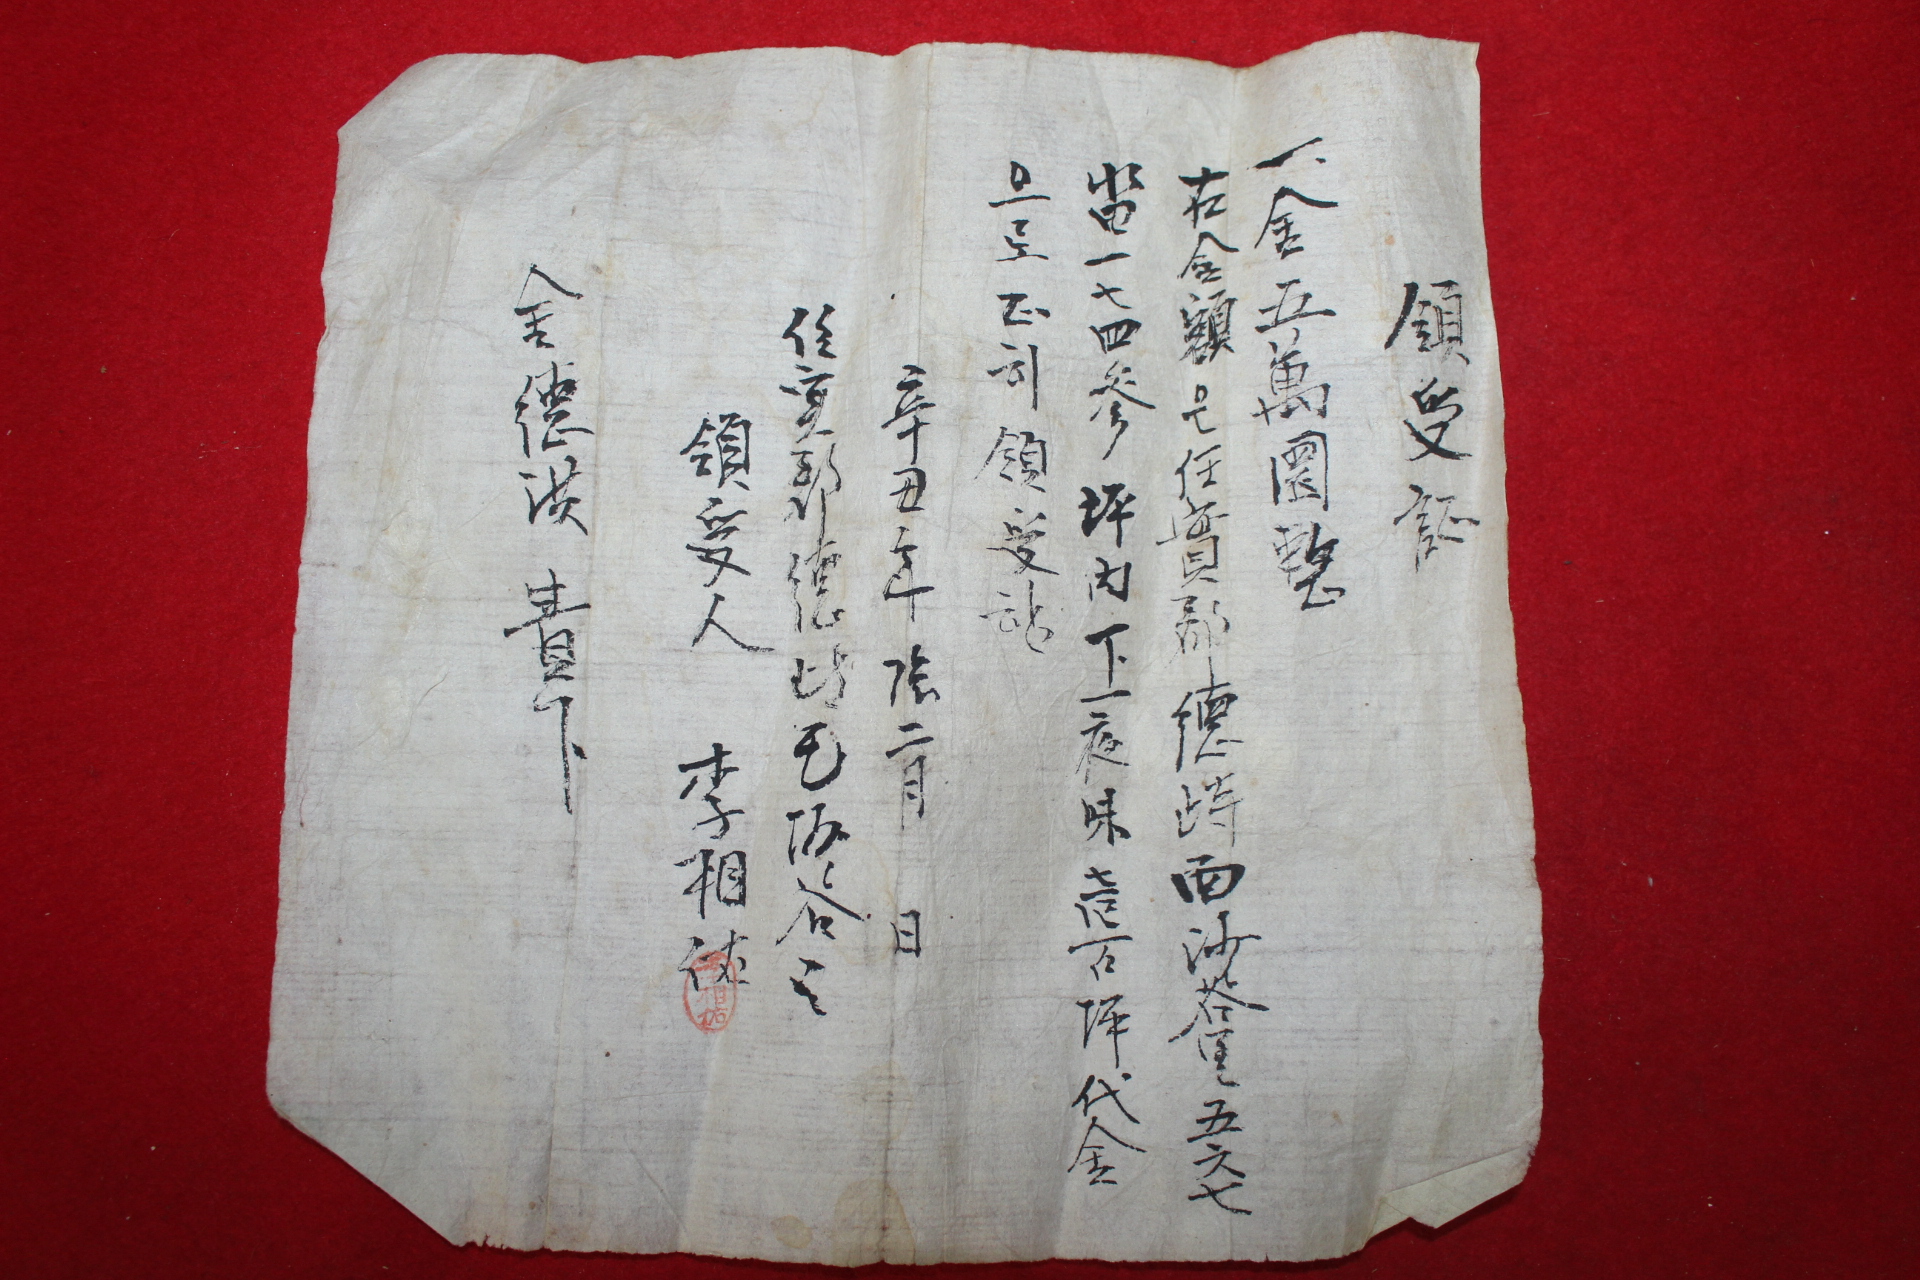 領受証
一、金五萬圜整
右金額은任實郡德峙面沙谷里五六七
畓一七四參坪內下一夜味壱百坪代金
으로正히領受함
辛丑年陰二月 日
任實郡德峙毛 谷
領受人 李相祐
金德洪 貴下
李相祐